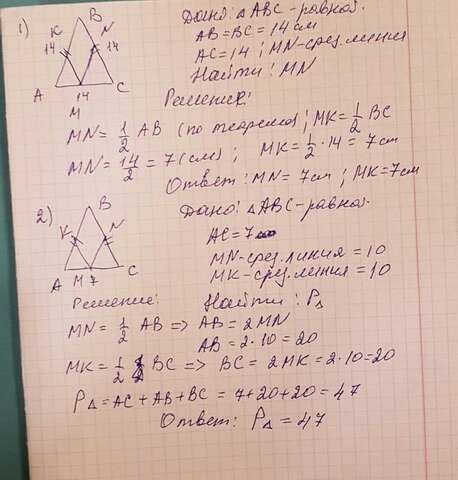 1) B Дано: △ABC - равноб.
K N AB = BC = 14 см
14 14 AC = 14; MN - сред. линия
A 14 C Найти: MN
M Решение:
MN = 1/2 AB (по теореме); MK = 1/2 BC
MN = 14/2 = 7 (см); MK = 1/2 · 14 = 7 см
Ответ: MN = 7 см; MK = 7 см
2) B Дано: △ABC - равноб.
K N AC = 7
MN - сред. линия = 10
A M 7 C MK - сред. линия = 10
Решение: Найти: P△
MN = 1/2 AB => AB = 2MN
AB = 2 · 10 = 20
MK = 1/2 BC => BC = 2MK = 2 · 10 = 20
P△ = AC + AB + BC = 7 + 20 + 20 = 47
Ответ: P△ = 47